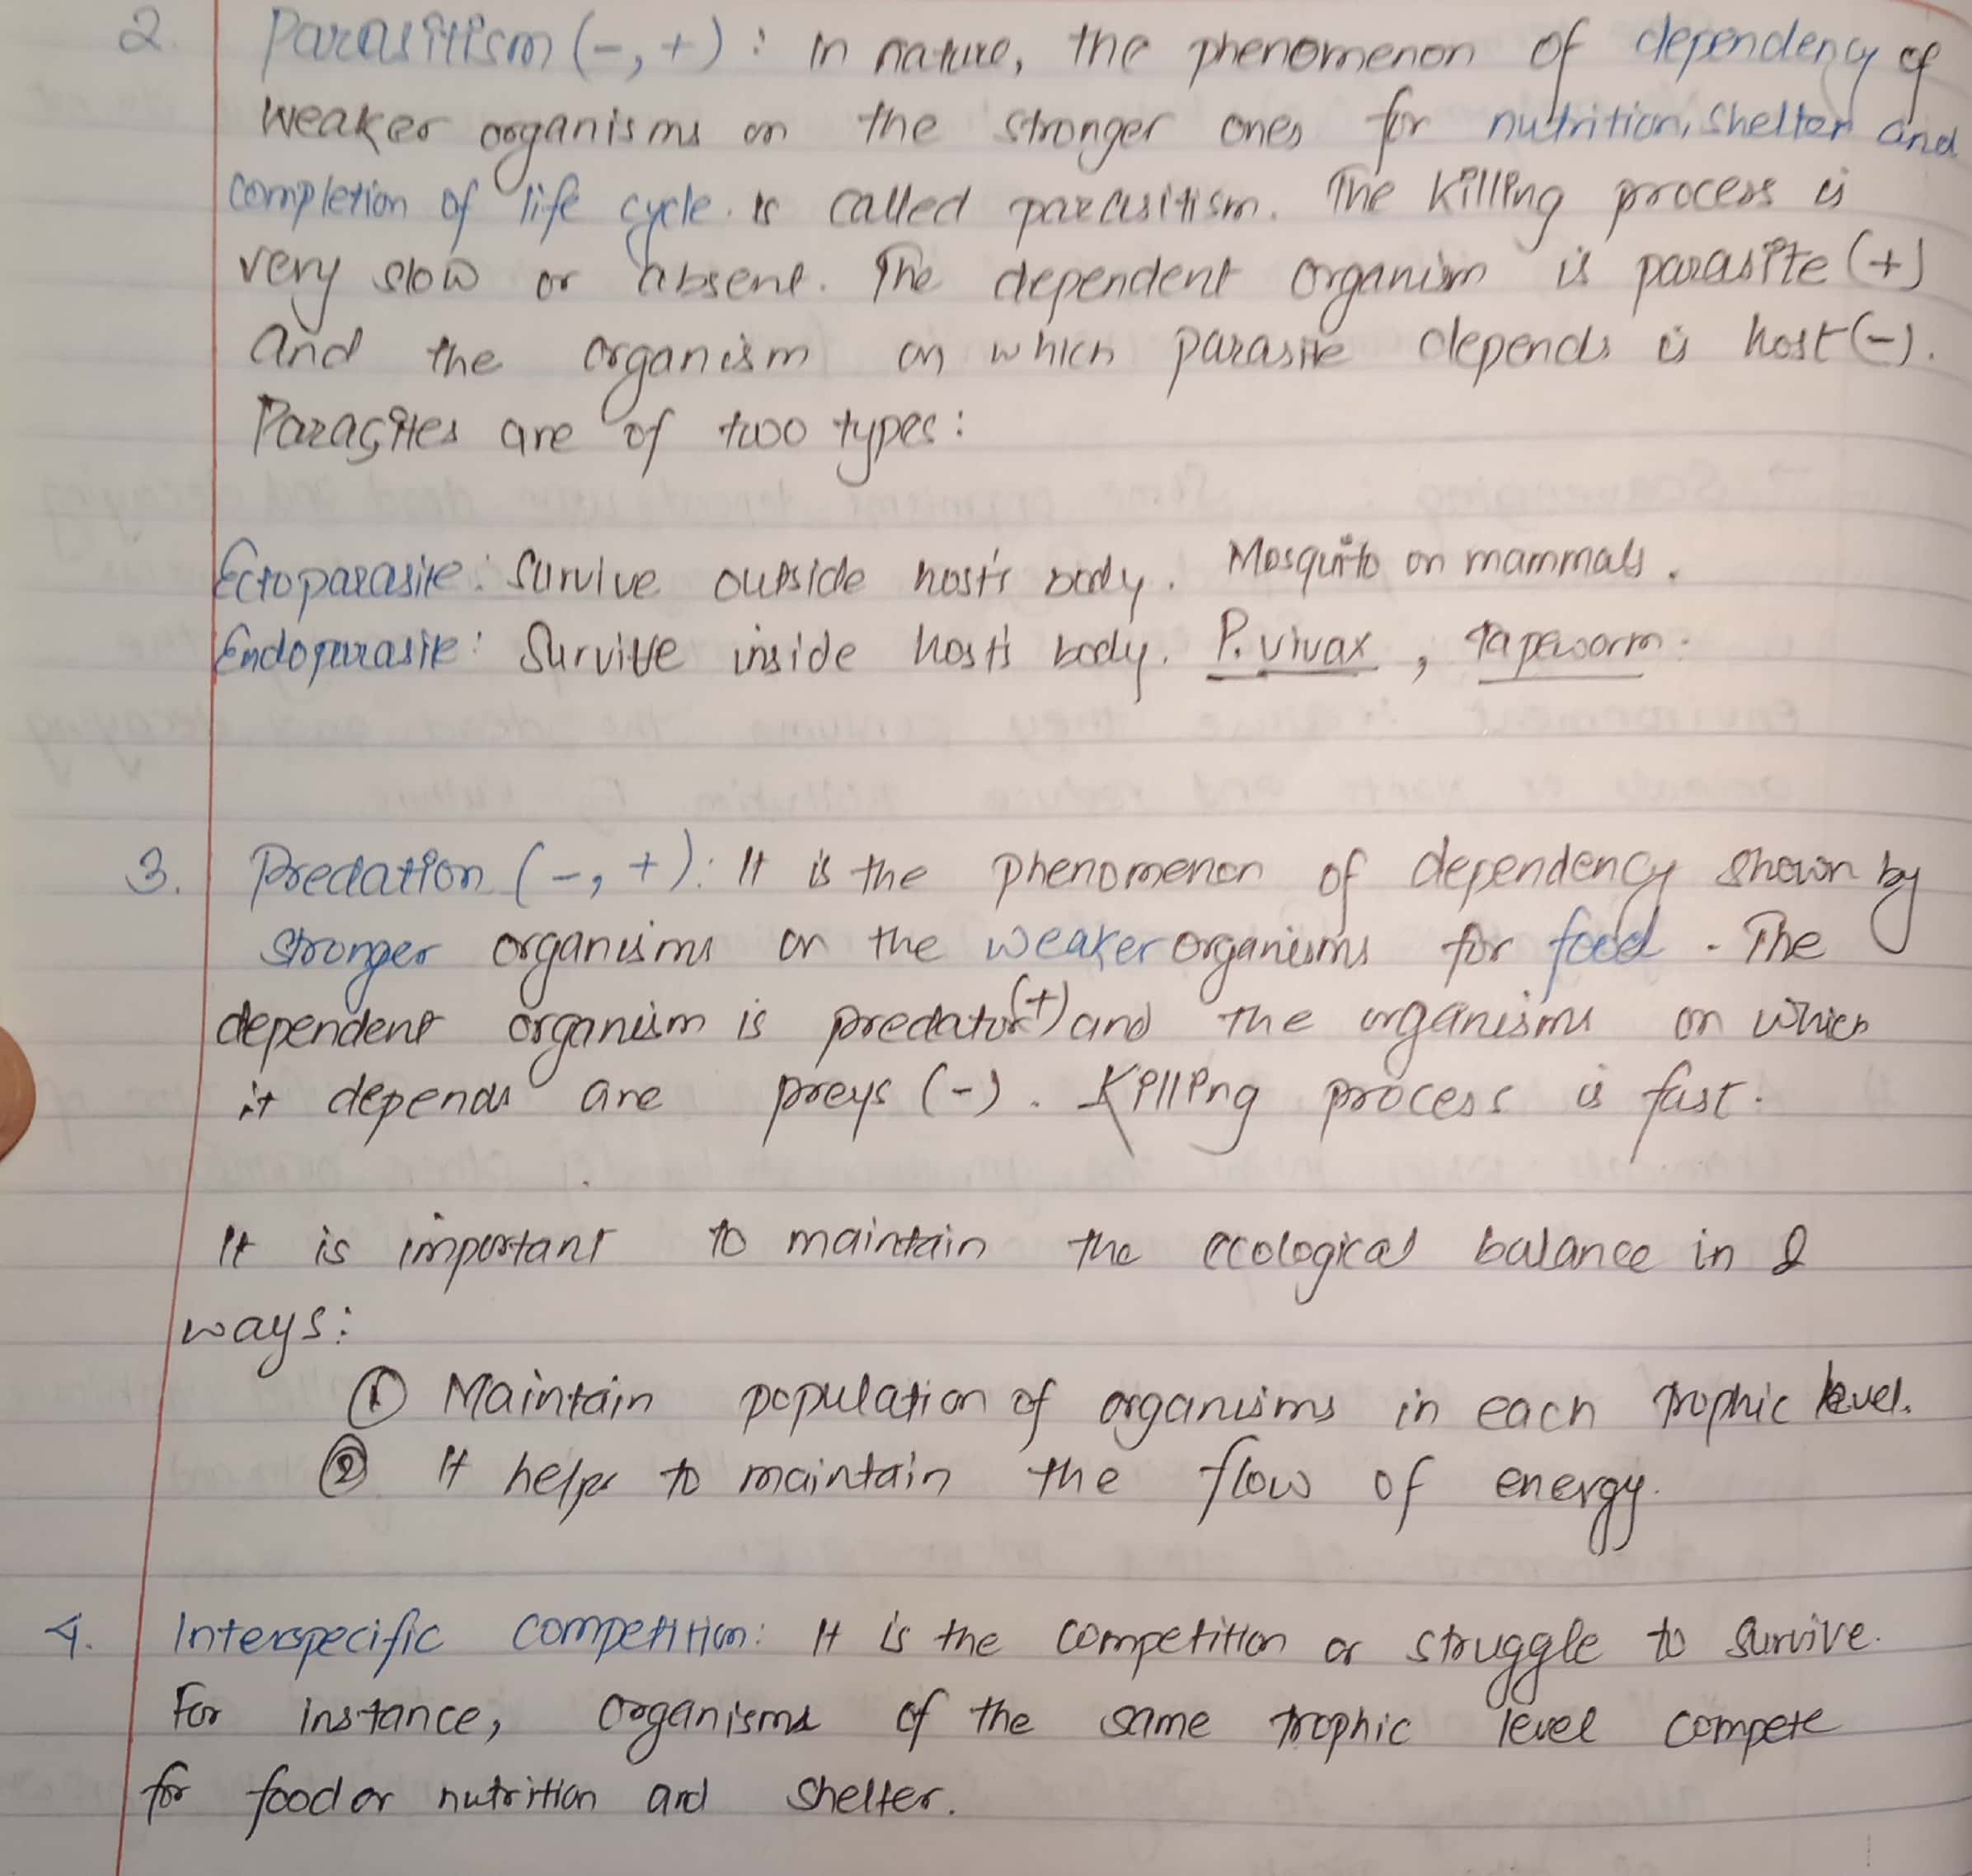 2. Parasitism (-, +) : In nature, the phenomenon of dependency of
weaker organisms on the stronger ones for nutrition, shelter and
completion of life cycle is called parasitism. The killing process is
very slow or absent. The dependent organism is parasite (+)
and the organism on which parasite depends is host (-).
Parasites are of two types:
Ectoparasite: Survive outside host's body. Mosquito on mammals.
Endoparasite: Survive inside host's body. P. vivax, Tapeworm.
3. Predation (-, +): It is the phenomenon of dependency shown by
stronger organisms on the weaker organisms for food. The
dependent organism is predator (+) and the organisms on which
it depends are preys (-). Killing process is fast.
It is important to maintain the ecological balance in 2
ways:
① Maintain population of organisms in each trophic level.
② It helps to maintain the flow of energy.
4. Interspecific competition: It is the competition or struggle to survive.
For instance, organisms of the same trophic level compete
for food or nutrition and shelter.